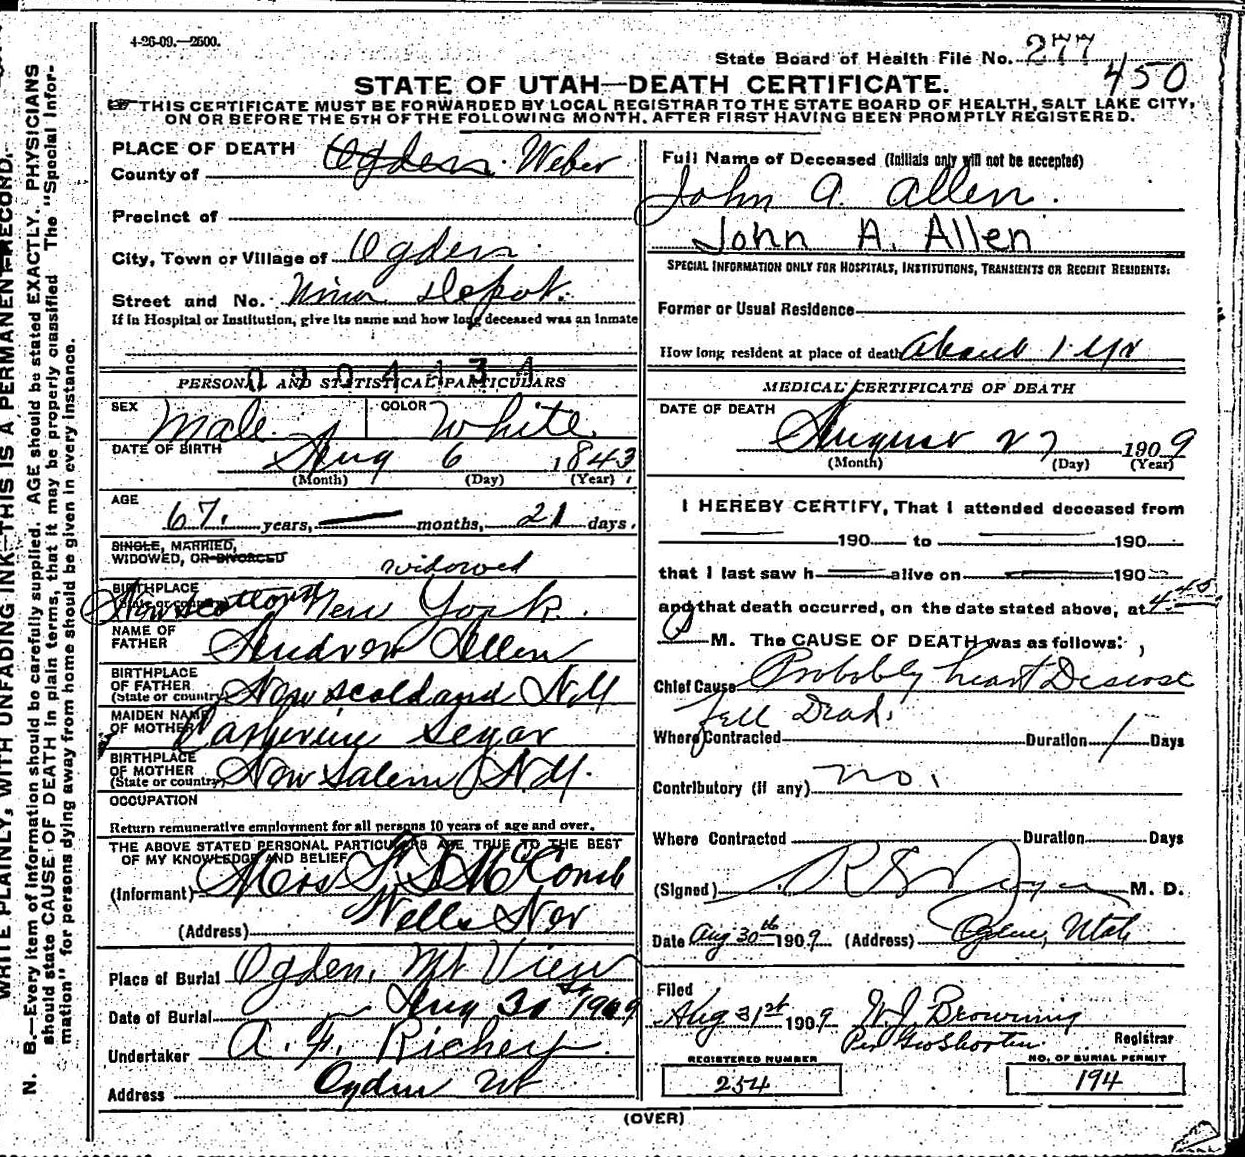 4-26-09.—2500.
State Board of Health File No. 277
450
STATE OF UTAH—DEATH CERTIFICATE.
☞THIS CERTIFICATE MUST BE FORWARDED BY LOCAL REGISTRAR TO THE STATE BOARD OF HEALTH, SALT LAKE CITY,
ON OR BEFORE THE 5TH OF THE FOLLOWING MONTH, AFTER FIRST HAVING BEEN PROMPTLY REGISTERED.
WRITE PLAINLY, WITH UNFADING INK—THIS IS A PERMANENT RECORD.
N. B.—Every item of information should be carefully supplied. AGE should be stated EXACTLY. PHYSICIANS
should state CAUSE OF DEATH in plain terms, that it may be properly classified. The "Special Infor-
mation" for persons dying away from home should be given in every instance.
PLACE OF DEATH
County of Ogden. Weber
Precinct of
City, Town or Village of Ogden
Street and No. Union Depot.
If in Hospital or Institution, give its name and how long deceased was an inmate
PERSONAL AND STATISTICAL PARTICULARS
SEX Male. COLOR White
DATE OF BIRTH Aug 6 1843
(Month) (Day) (Year)
AGE
67. years, — months, 21 days.
SINGLE, MARRIED,
WIDOWED, OR DIVORCED widowed
BIRTHPLACE
(State or country) New York.
NAME OF
FATHER Andrew Allen
BIRTHPLACE
OF FATHER
(State or country) New Scoldand N.Y.
MAIDEN NAME
OF MOTHER Catherine Segar
BIRTHPLACE
OF MOTHER
(State or country) New Salem N.Y.
OCCUPATION
Return remunerative employment for all persons 10 years of age and over.
THE ABOVE STATED PERSONAL PARTICULARS ARE TRUE TO THE BEST
OF MY KNOWLEDGE AND BELIEF
(Informant) Mrs McComb
(Address) Wells Nev
Place of Burial Ogden, Mt View
Date of Burial Aug 30 1909
Undertaker A. F. Richey.
Address Ogden Ut
Full Name of Deceased (Initials only will not be accepted)
John A. Allen.
John A. Allen
SPECIAL INFORMATION ONLY FOR HOSPITALS, INSTITUTIONS, TRANSIENTS OR RECENT RESIDENTS:
Former or Usual Residence
How long resident at place of death About 1 yr
MEDICAL CERTIFICATE OF DEATH
DATE OF DEATH
August 27 1909
(Month) (Day) (Year)
I HEREBY CERTIFY, That I attended deceased from
190 to 190
that I last saw h alive on 190
and that death occurred, on the date stated above, at 4 45
P M. The CAUSE OF DEATH was as follows:
Chief Cause Probably heart Disease
fell Dead.
Where Contracted Duration 1 Days
Contributory (if any) no.
Where Contracted Duration Days
(Signed) M. D.
Date Aug 30th 1909 (Address) Ogden, Utah
Filed
Aug 31st 1909 W J Browning
Registrar
REGISTERED NUMBER
254
NO. OF BURIAL PERMIT
194
(OVER)